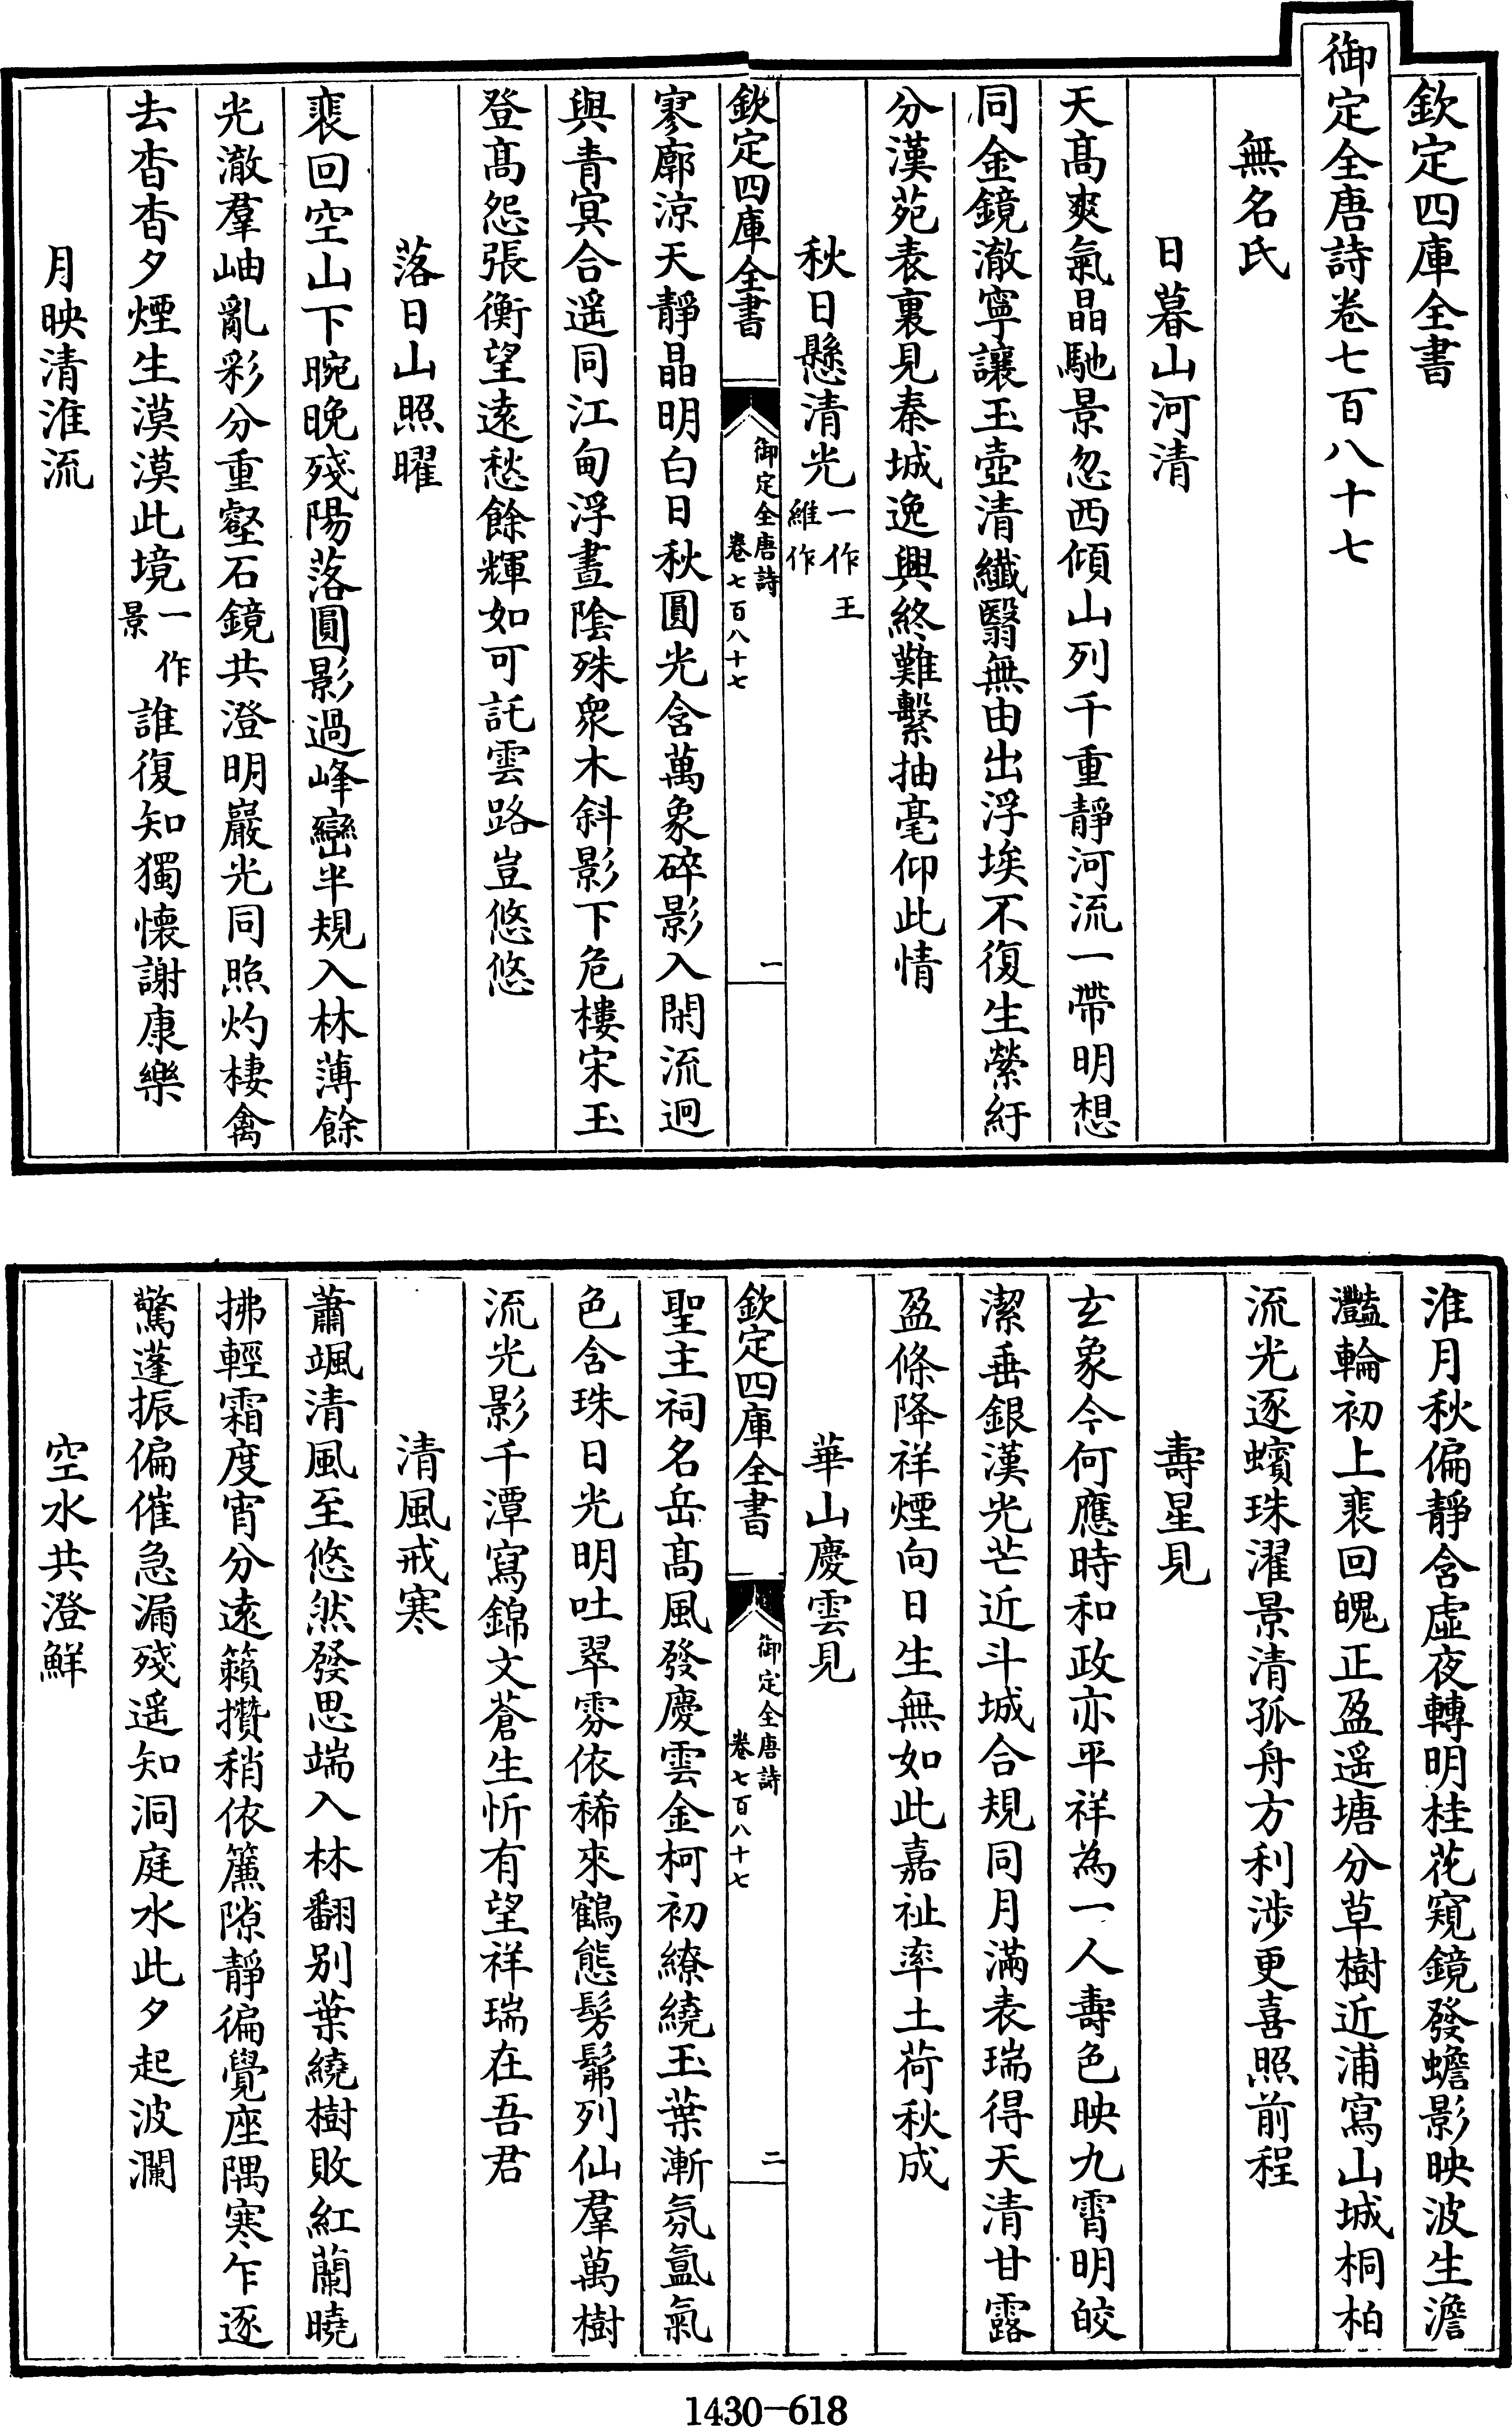 欽定四庫全書
御定全唐詩卷七百八十七
無名氏
日暮山河清
天高爽氣晶馳景忽西傾山列千重靜河流一帶明想
同金鏡澈寧讓玉壺清纖翳無由出浮埃不復生縈紆
分漢苑表裏見秦城逸興終難繫抽毫仰此情
秋日懸清光一作王維作
欽定四庫全書 御定全唐詩卷七百八十七 一
寥廓涼天靜晶明白日秋圓光含萬象碎影入閑流迥
與青冥合遥同江甸浮晝陰殊衆木斜影下危樓宋玉
登高怨張衡望遠愁餘輝如可託雲路豈悠悠
落日山照曜
裴回空山下晼晚殘陽落圓影過峰巒半規入林薄餘
光澈羣岫亂彩分重壑石鏡共澄明巖光同照灼棲禽
去杳杳夕煙生漠漠此境一作景誰復知獨懷謝康樂
月映清淮流
淮月秋偏靜含虛夜轉明桂花窺鏡發蟾影映波生澹
灩輪初上裴回魄正盈遥塘分草樹近浦寫山城桐柏
流光逐蠙珠濯景清孤舟方利涉更喜照前程
壽星見
玄象今何應時和政亦平祥為一人壽色映九霄明皎
潔垂銀漢光芒近斗城合規同月滿表瑞得天清甘露
盈條降祥煙向日生無如此嘉祉率土荷秋成
華山慶雲見
欽定四庫全書 御定全唐詩卷七百八十七 二
聖主祠名岳高風發慶雲金柯初繚繞玉葉漸氛氲氣
色含珠日光明吐翠雰依稀來鶴態髣髴列仙羣萬樹
流光影千潭寫錦文蒼生忻有望祥瑞在吾君
清風戒寒
蕭颯清風至悠然發思端入林翻別葉繞樹敗紅蘭曉
拂輕霜度宵分遠籟攢稍依簾隙靜偏覺座隅寒乍逐
驚蓬振偏催急漏殘遥知洞庭水此夕起波瀾
空水共澄鮮
1430-618